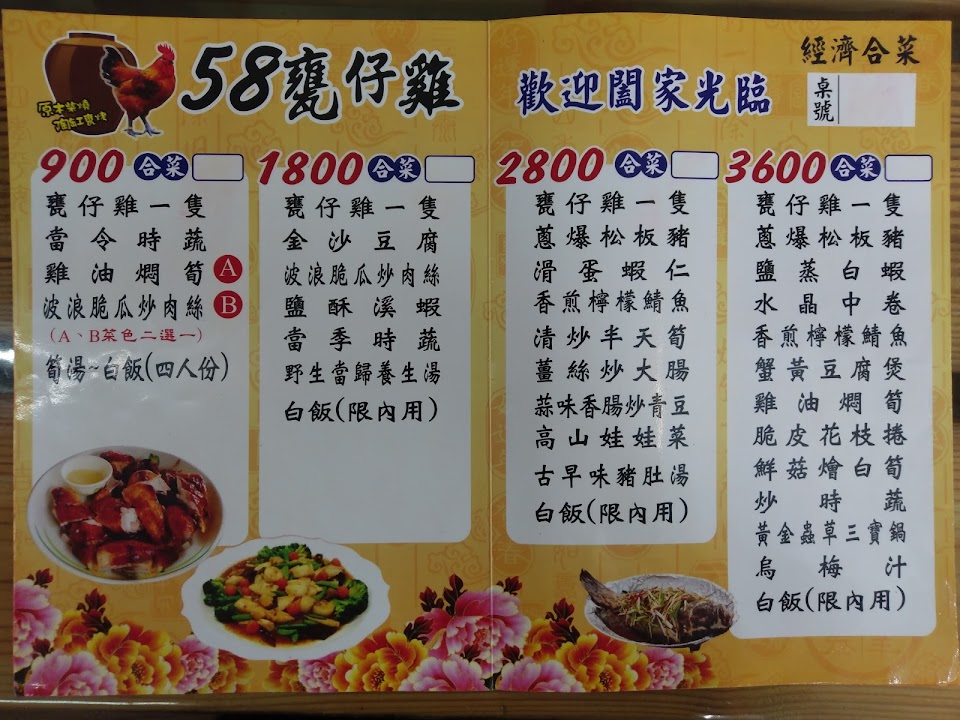 原木柴燒
陶缸甕烤
58甕仔雞
歡迎闔家光臨
經濟合菜
桌號
900 合菜
甕仔雞一隻
當令時蔬
雞油燜筍 A
波浪脆瓜炒肉絲 B
(A、B菜色二選一)
筍湯~白飯(四人份)
1800 合菜
甕仔雞一隻
金沙豆腐
波浪脆瓜炒肉絲
鹽酥溪蝦
當季時蔬
野生當歸養生湯
白飯(限內用)
2800 合菜
甕仔雞一隻
蔥爆松板豬
滑蛋蝦仁
香煎檸檬鯖魚
清炒半天筍
薑絲炒大腸
蒜味香腸炒青豆
高山娃娃菜
古早味豬肚湯
白飯(限內用)
3600 合菜
甕仔雞一隻
蔥爆松板豬
鹽蒸白蝦
水晶中卷
香煎檸檬鯖魚
蟹黃豆腐煲
雞油燜筍
脆皮花枝捲
鮮菇燴白筍
炒時蔬
黃金蟲草三寶鍋
烏梅汁
白飯(限內用)